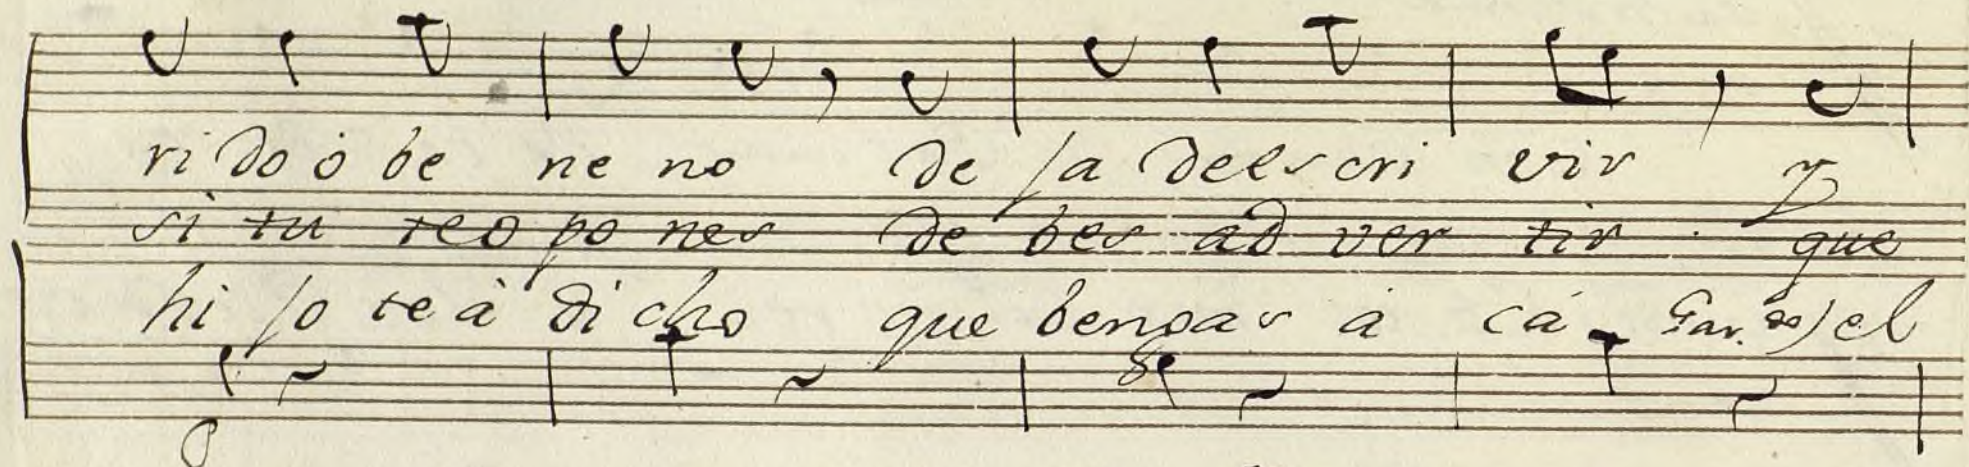 ri do ó be ne no de ja del es cri vir y
si tu te o po nes de bes ad ver tir que
hi jo te á di cho que bengas a cá Gar.do) el